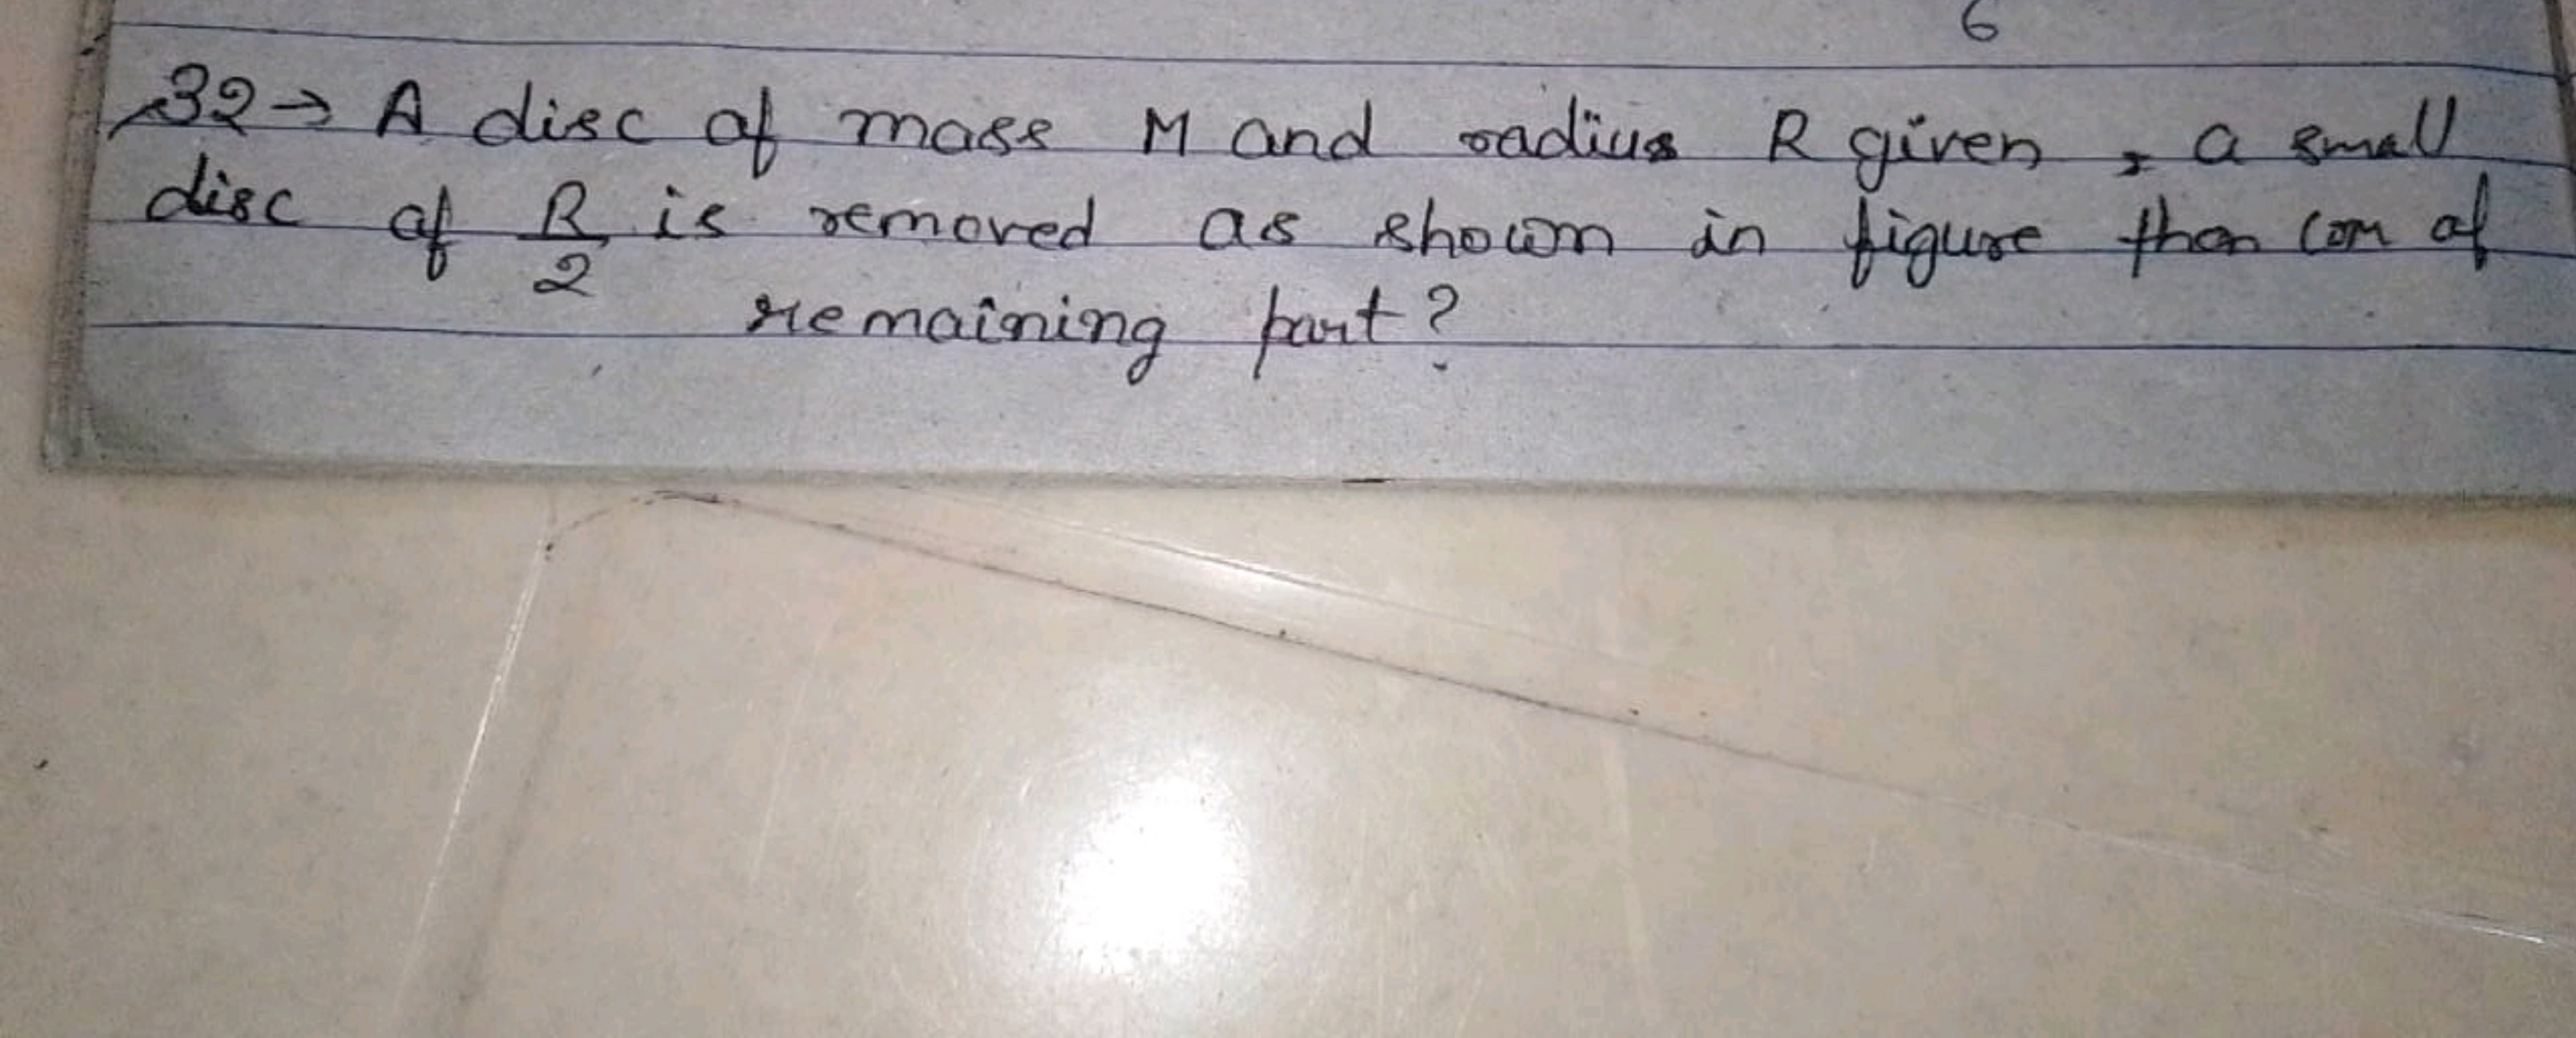 6
32→ A disc of mass M and radius R given, a small
disc of R/2 is removed as shown in figure then com of
remaining part?